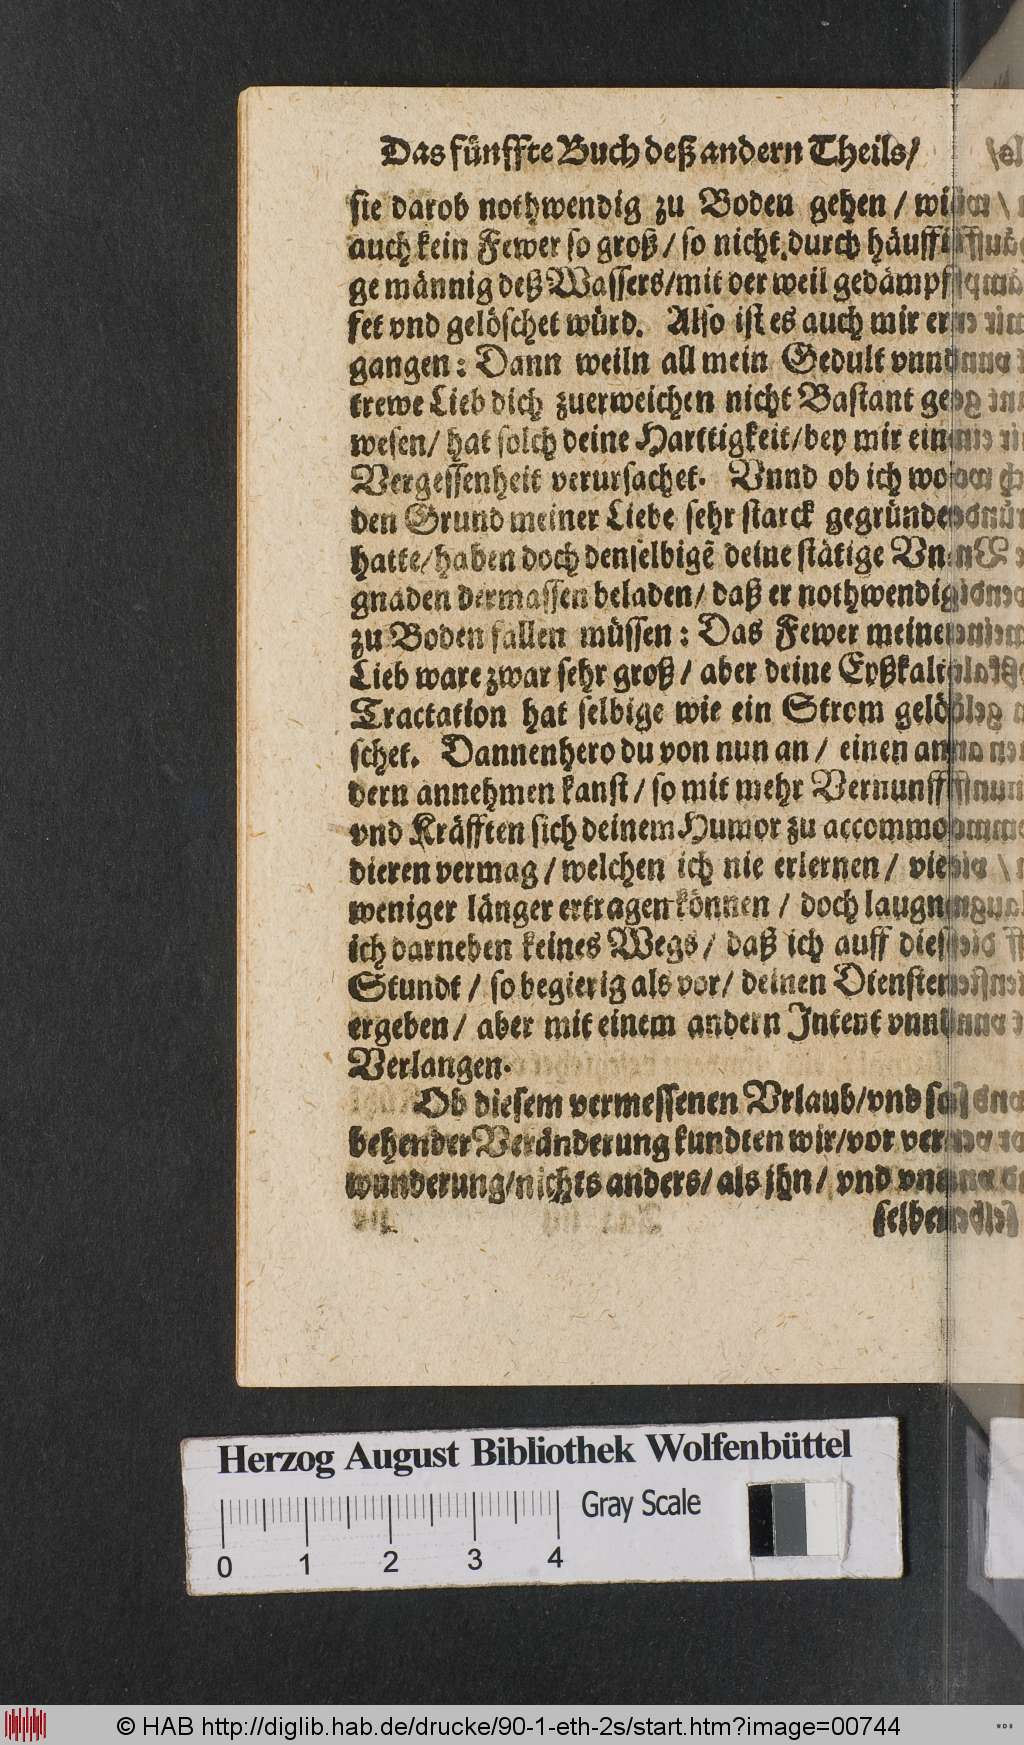 Das fünffte Buch deß andern Theils/
sie darob nothwendig zu Boden gehen / wie
auch kein Fewer so groß / so nicht durch häuffi
ge männig deß Wassers/mit der weil gedämpf
fet vnd gelöschet würd. Also ist es auch mir er
gangen: Dann weiln all mein Gedult vnnd
trewe Lieb dich zuerweichen nicht Bastant ge
wesen/ hat solch deine Harttigkeit/bey mir ein
Vergessenheit verursachet. Vnnd ob ich wo
den Grund meiner Liebe sehr starck gegründe
hatte/haben doch denselbigẽ deine stätige Vn
gnaden dermassen beladen/ daß er nothwendig
zu Boden fallen müssen: Das Fewer meine
Lieb ware zwar sehr groß / aber deine Eyßkalt
Tractation hat selbige wie ein Strom gelö
schet. Dannenhero du von nun an / einen an
dern annehmen kanst / so mit mehr Vernunff
vnd Kräfften sich deinem Humor zu accommo
dieren vermag / welchen ich nie erlernen / vie
weniger länger ertragen können / doch laugn
ich darneben keines Wegs / daß ich auff dies
Stundt / so begierig als vor/ deinen Diensten
ergeben / aber mit einem andern Intent vnnd
Verlangen.
Ob diesem vermessenen Vrlaub/vnd so
behender Veränderung kundten wir/vor ver
wunderung/nichts anders/ als jhn / vnd vn
selbe
Herzog August Bibliothek Wolfenbüttel
Gray Scale
0 1 2 3 4
© HAB http://diglib.hab.de/drucke/90-1-eth-2s/start.htm?image=00744